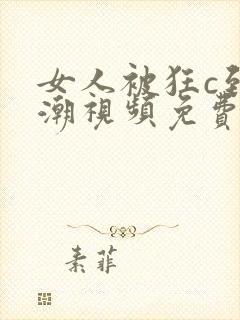 女人被狂c到
潮視頻免費
素菲